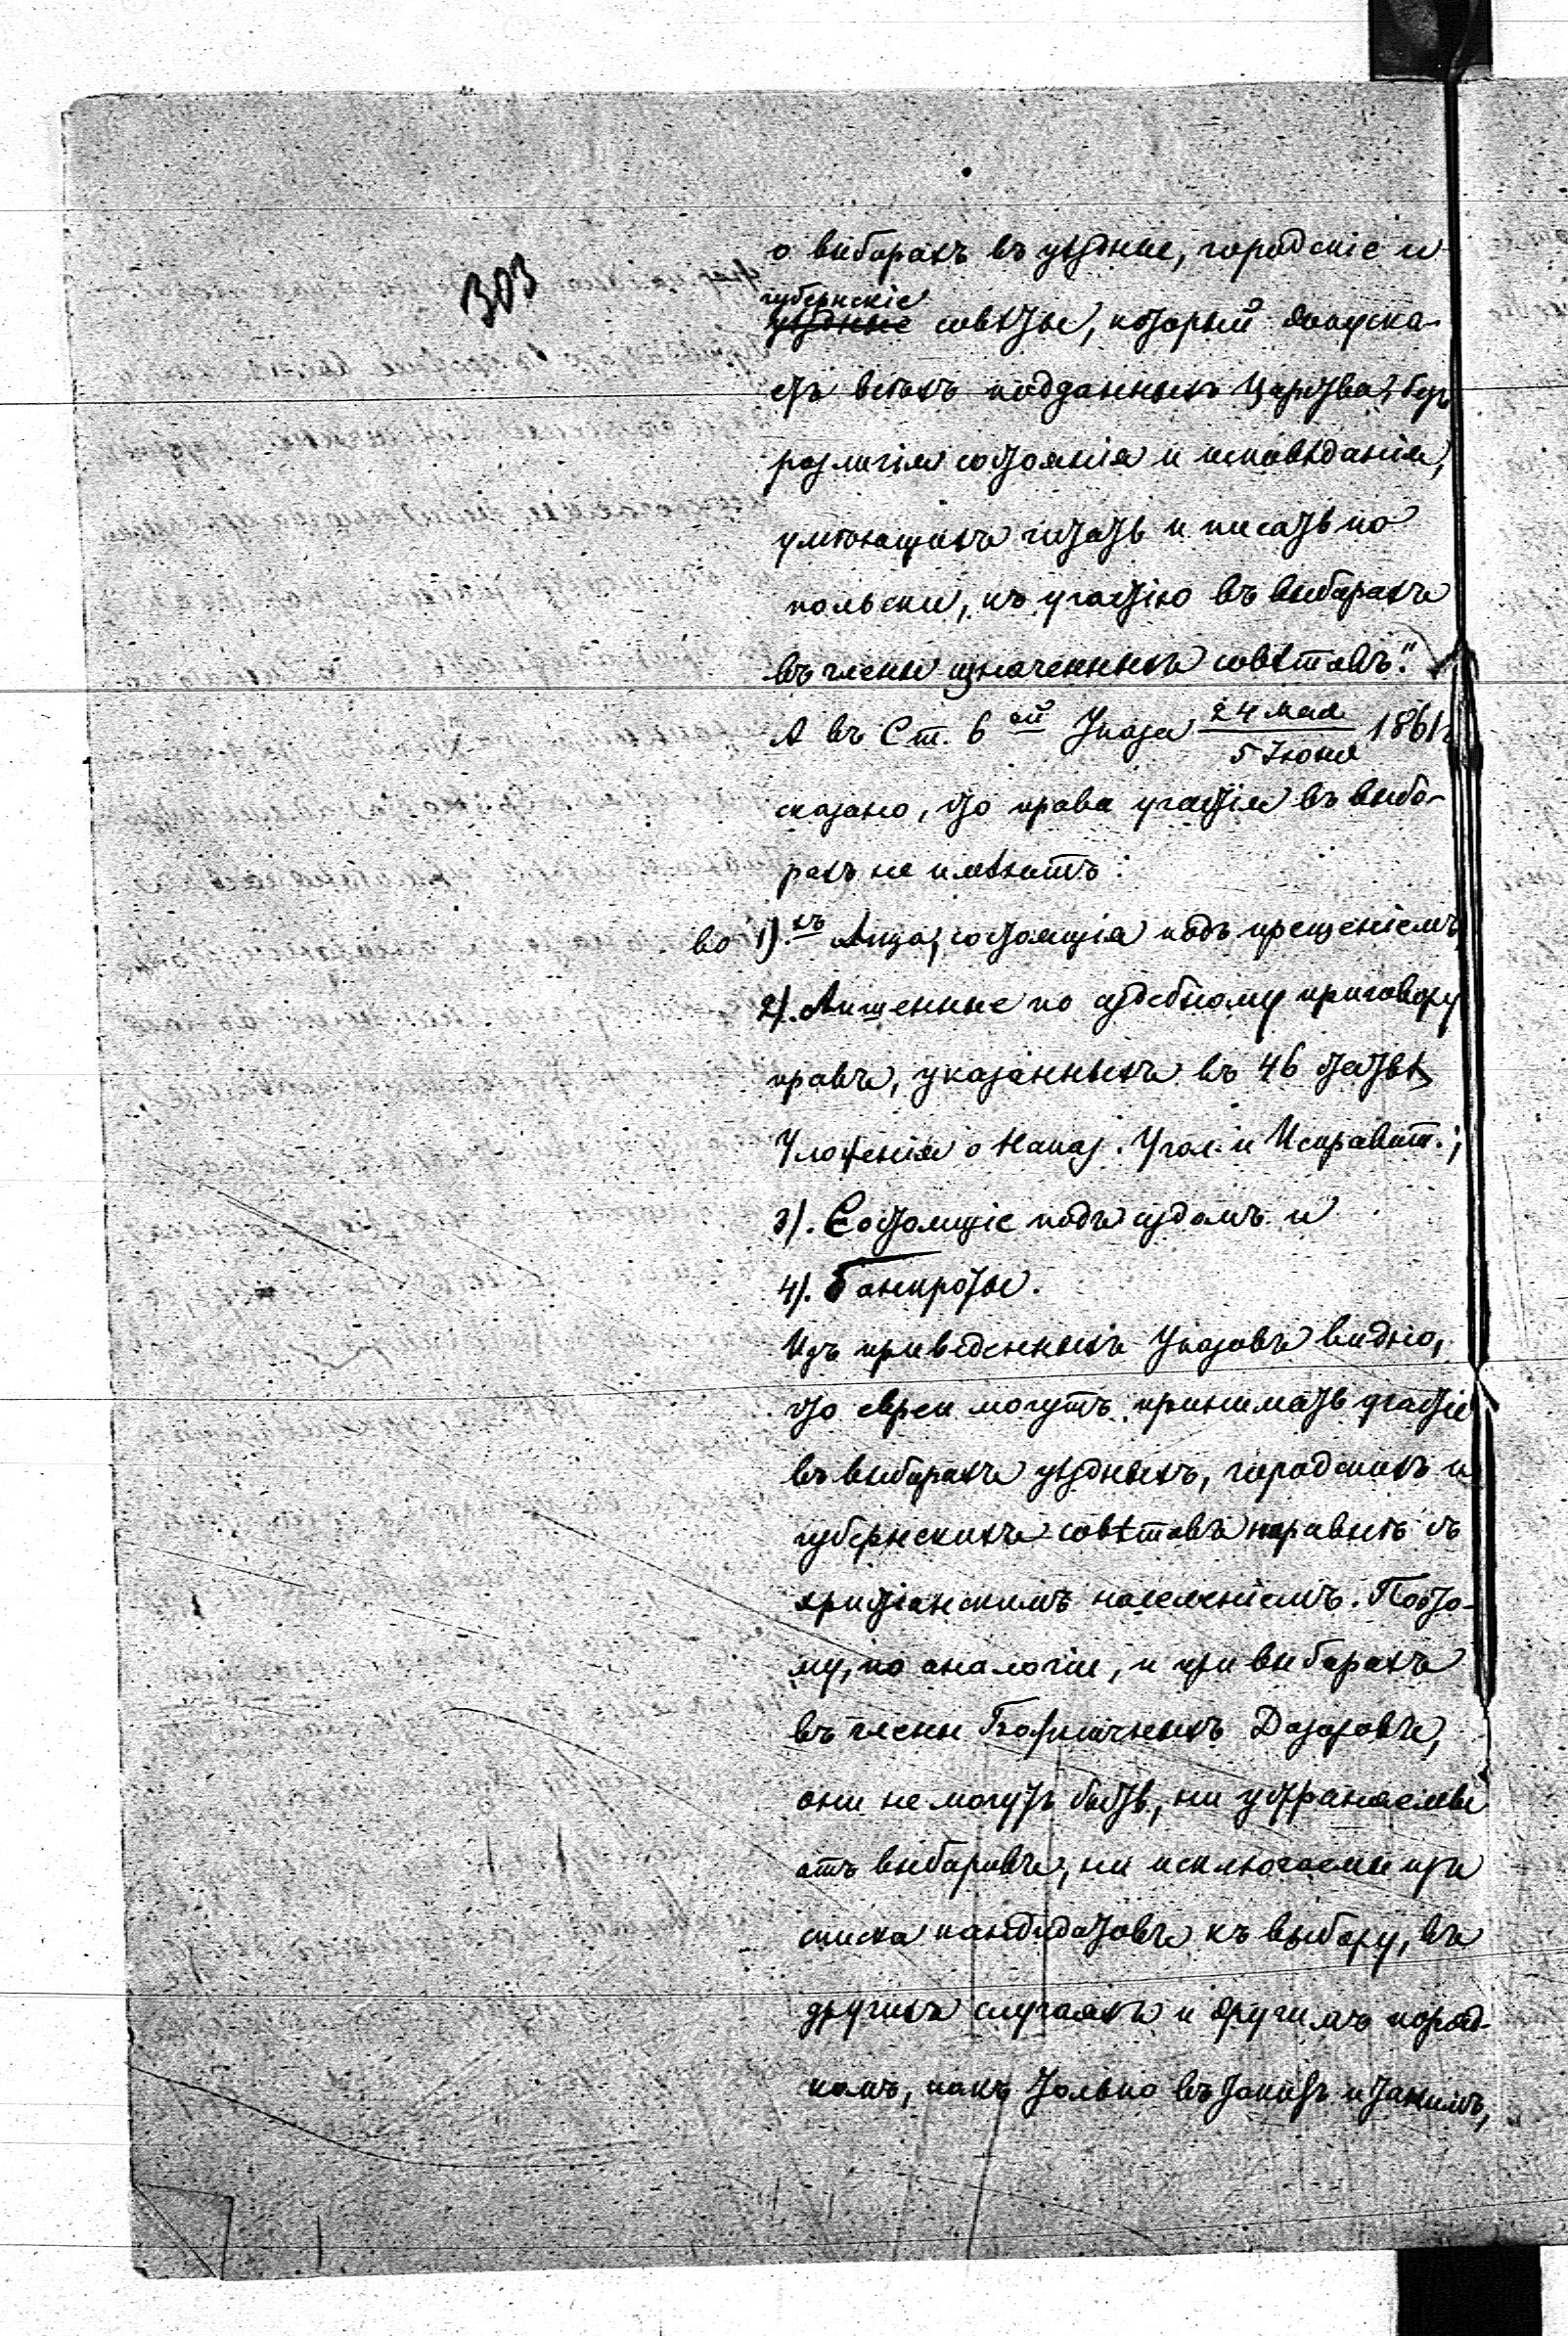 303
о выборахъ въ уѣздные, городскіе и
губернскіе
уѣздные совѣты, который допуска-
етъ всѣхъ подданныхъ Царства, безъ
различія состоянія и исповѣданія,
умѣющихъ читать и писать по
польски, къ участію въ выборахъ
въ члены означенныхъ совѣтовъ."
А въ Ст. 6ой Указа 24 мая / 5 Іюня 1861 г.
сказано, что права участія въ выбо-
рахъ не имѣютъ:
во 1).хъ Лица, состоящія подъ прещеніемъ,
2). Лишенные по судебному приговору
правъ, указанныхъ въ 46 статьѣ
Уложенія о Наказ. Угол. и Исправит.;
3). Состоящіе подъ судомъ и
4). Банкроты.
Изъ приведенныхъ Указовъ видно,
что евреи могутъ принимать участіе
въ выборахъ уѣздныхъ, городскихъ и
губернскихъ совѣтовъ наравнѣ съ
христіанскимъ населеніемъ. Поэто-
му, по аналогіи, и при выборахъ
въ члены Божничныхъ Дозоровъ,
они не могутъ быть, ни устраняемы
отъ выборовъ, ни исключаемы изъ
списка кандидатовъ къ выбору, въ
другихъ случаяхъ и другимъ поряд-
комъ, какъ только въ такихъ и такимъ,